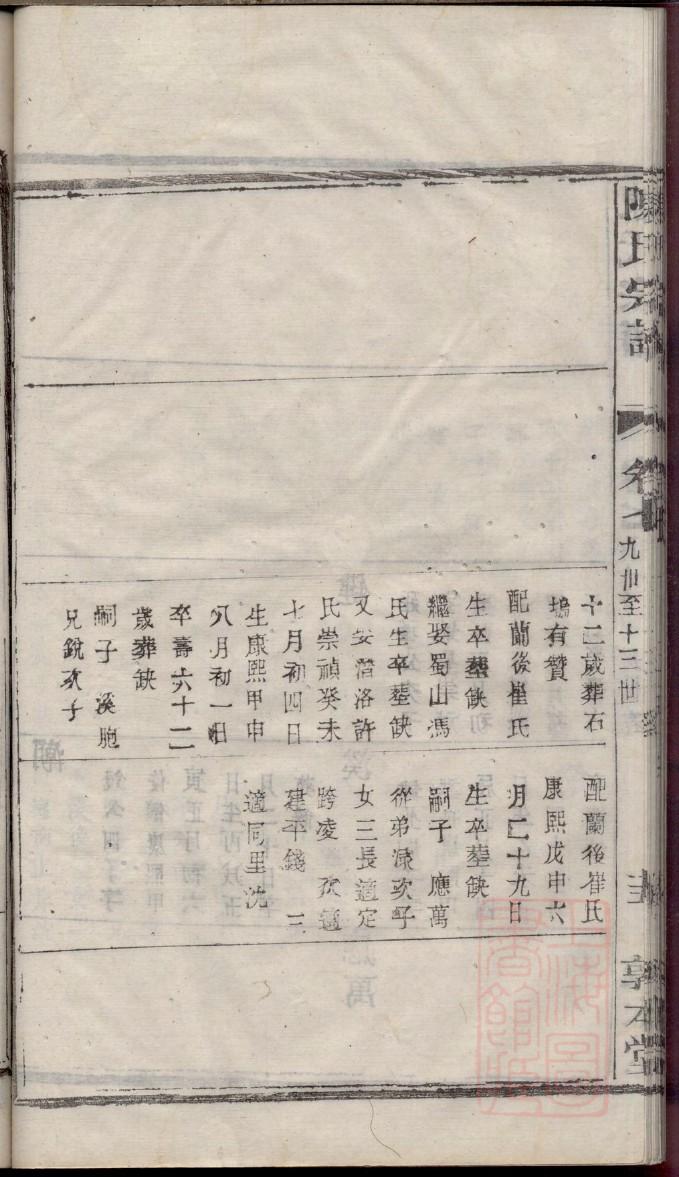 陳氏宗譜
卷七
九世至十三世
敦本堂
十二歲葬石
塢有贊
配蘭後崔氏
生卒葬缺
繼娶蜀山馮
氏生卒葬缺
又娶潛洛許
氏崇禎癸未
七月初四日
生康熙甲申
八月初一日
卒壽六十二
歲葬缺
嗣子 溪胞
兄銳次子
配蘭後崔氏
康熙戊申六
月二十九日
生卒葬缺
嗣子 應萬
從弟 次子
女三長適定
跨凌 次適
建平錢 三
適同里沈
上海圖書館藏